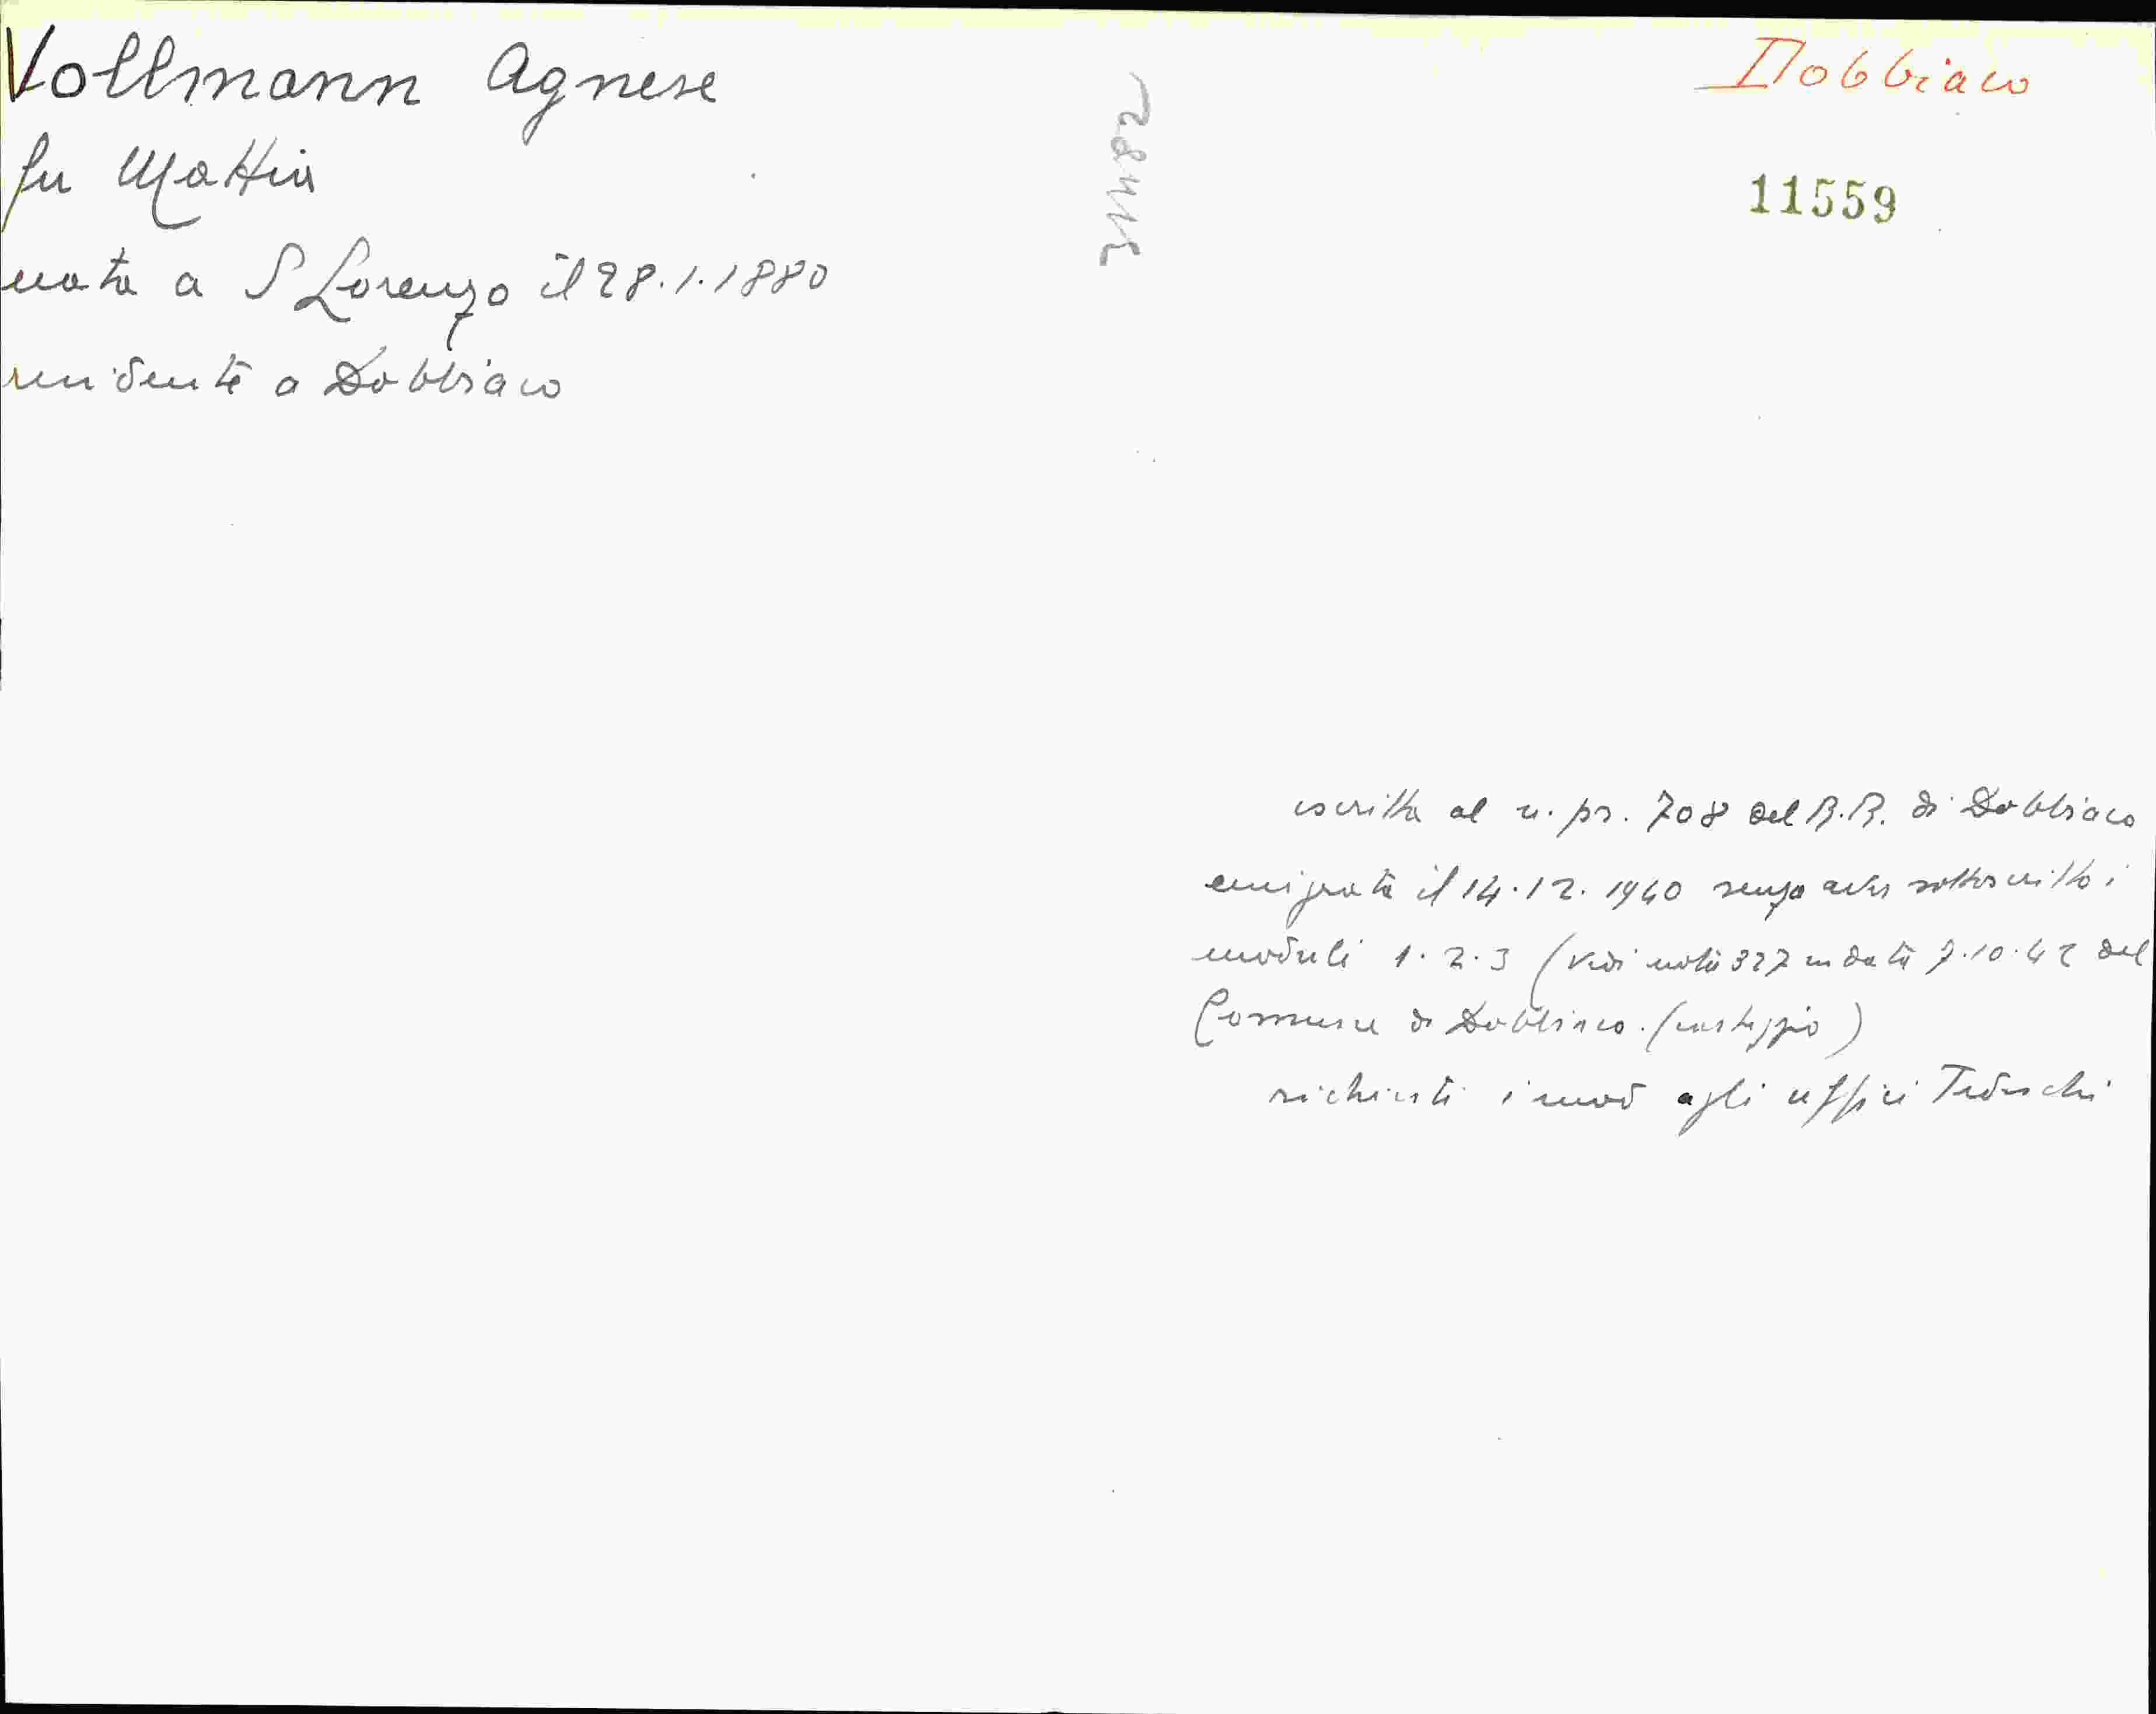 Vollmann Agnese
Dobbiaco
fu Mattia
11559
nata a S Lorenzo il 28.1.1880
residente a Dobbiaco
iscritta al n. pr. 708 del R.R. di Dobbiaco
emigrata il 14.12.1940 senza aver sottoscritto i
moduli 1.2.3 (vedi nota 327 in data 7.10.42 del
Comune di Dobbiaco. (carteggio)
richiesti i mod agli uffici Tedeschi